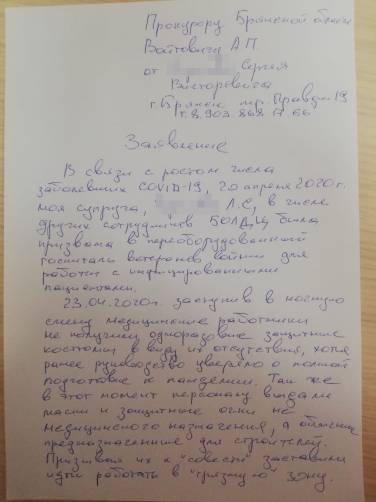 Прокурору Брянской области
Войтовичу А П
от Сергея
Викторовича
г. Брянск
т. 8.903. 868 17 66
Заявление
В связи с ростом числа
заболевших COVID-19, 20 апреля 2020 г.
моя супруга, Л.С, в числе
других сотрудников была
призвана в переоборудованный
госпиталь ветеранов войны для
работы с инфицированными
пациентами.
23.04.2020г. заступив в ночную
смену медицинские работники
не получили одноразовые защитные
костюмы в виду их отсутствия, хотя
ранее руководство уверяло о полной
подготовке к пандемии. Так же
в этот момент персоналу выдали
маски и защитные очки не
медицинского назначения, а обычные
предназначенные для строителей.
Призывая их к "совести" заставили
идти работать в "грязную" зону.